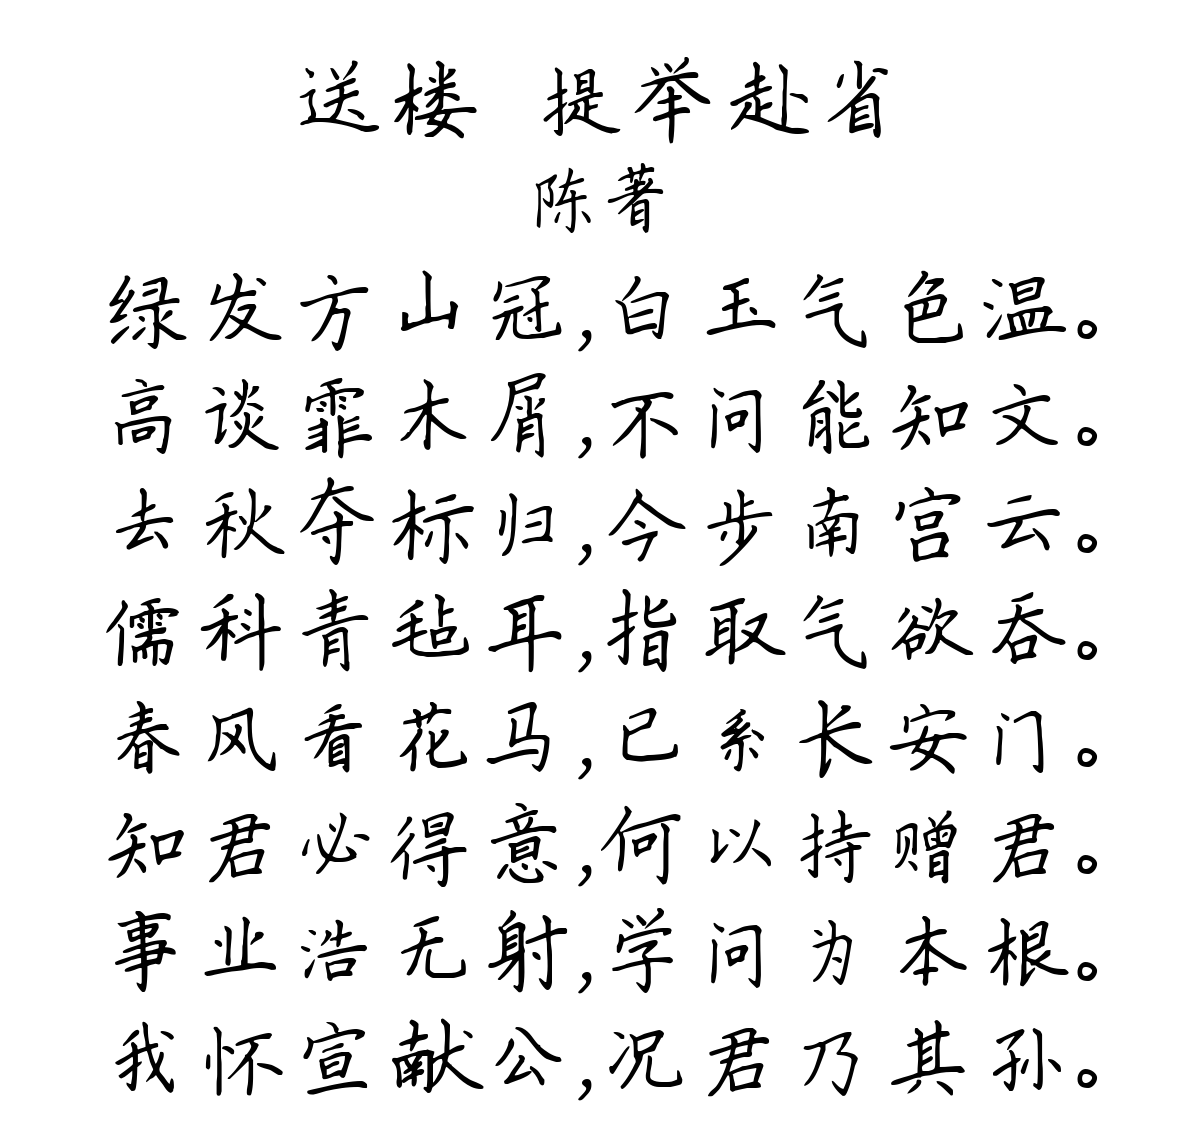 送楼 提举赴省
陈著
绿发方山冠,白玉气色温。
高谈霏木屑,不问能知文。
去秋夺标归,今步南宫云。
儒科青毡耳,指取气欲吞。
春风看花马,已系长安门。
知君必得意,何以持赠君。
事业浩无射,学问为本根。
我怀宣献公,况君乃其孙。